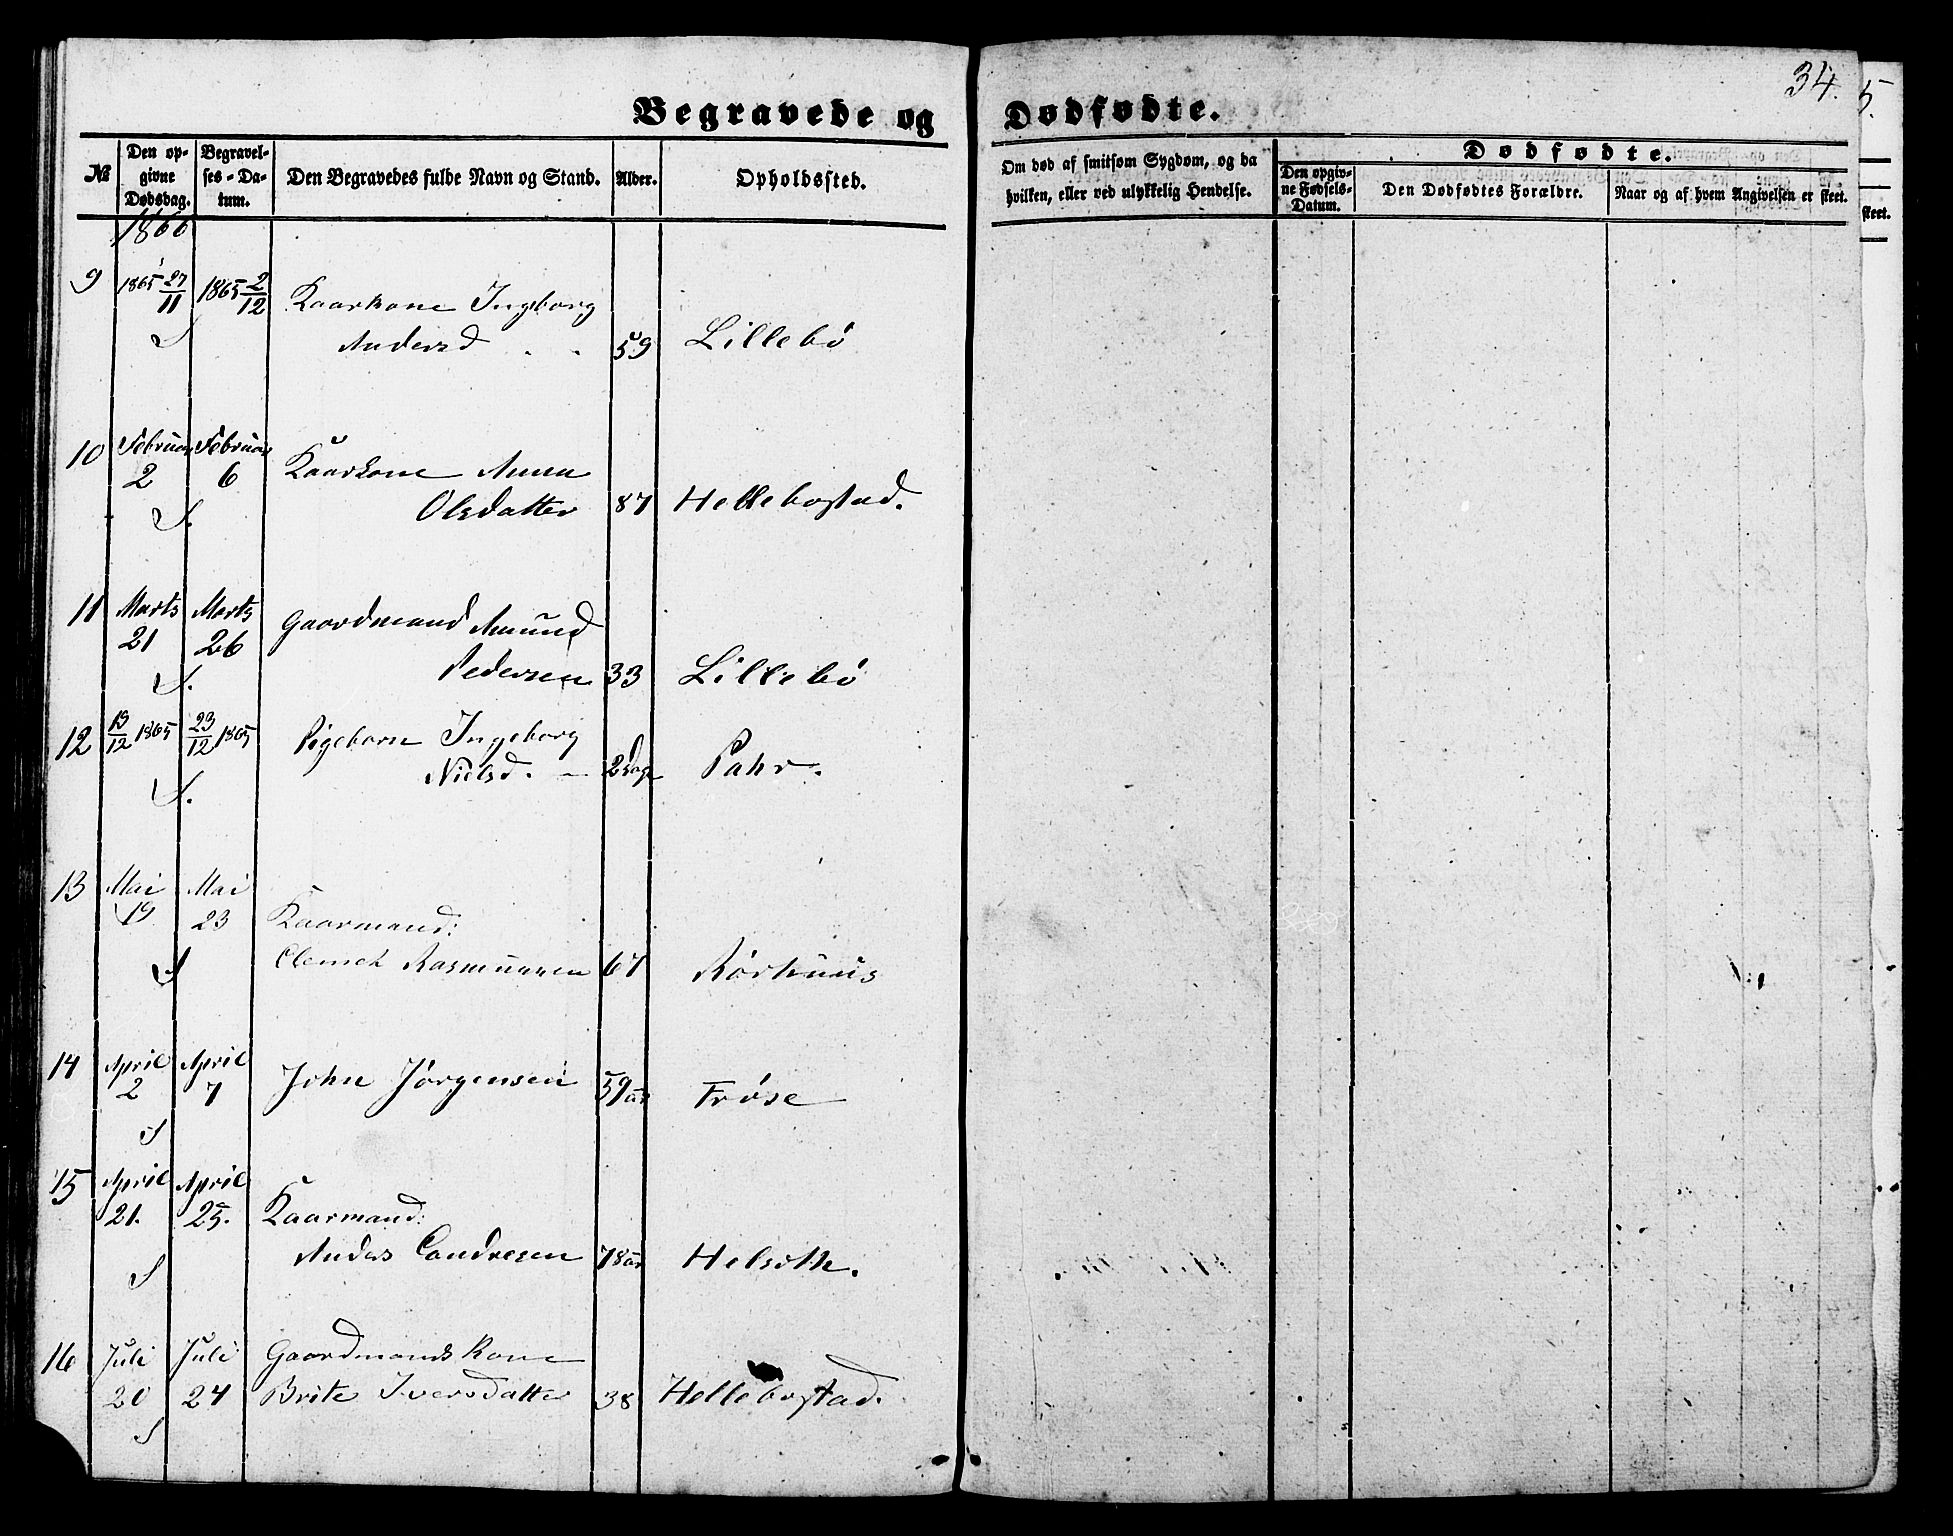 34.
5.
Begravede og Dødfødte.
№
Den opgivne Dødsdag.
Begravelses-Datum.
Den Begravedes fulde Navn og Stand.
Alder.
Opholdssted.
Om død af smitsom Sygdom, og da hvilken, eller ved ulykkelig Hendelse.
Dødfødte.
Den opgivne Fødsels-Datum.
Den Dødfødtes Forældre.
Naar og af hvem Angivelsen er skeet.
skeet.
1866
9 1865 27/11 1865 2/12 Kaarkone Ingborg
Andersd 59 Lillebö
10 Februar 2 Februar 6 Kaarkone Anna
Olsdatter 87 Hellebostad.
11 Marts 21 Marts 26 Gaardmand Amund
Pedersen 33 Lillebö
12 19/12 1865 23/12 1865 Pigebarn Ingeborg
Nielsd. 2 Dage Pahr.
13 Mai 19 Mai 23 Kaarmand:
Clemet Rasmussen 67 Rörhuus
14 April 2 April 7 John Jörgensen 59 aar Fröse
15 April 21. April 25. Kaarmand:
Anders 78 aar
16 Juli 20 Juli 24 Gaardmands Kone
Brite Iversdatter 38 Hellebostad.